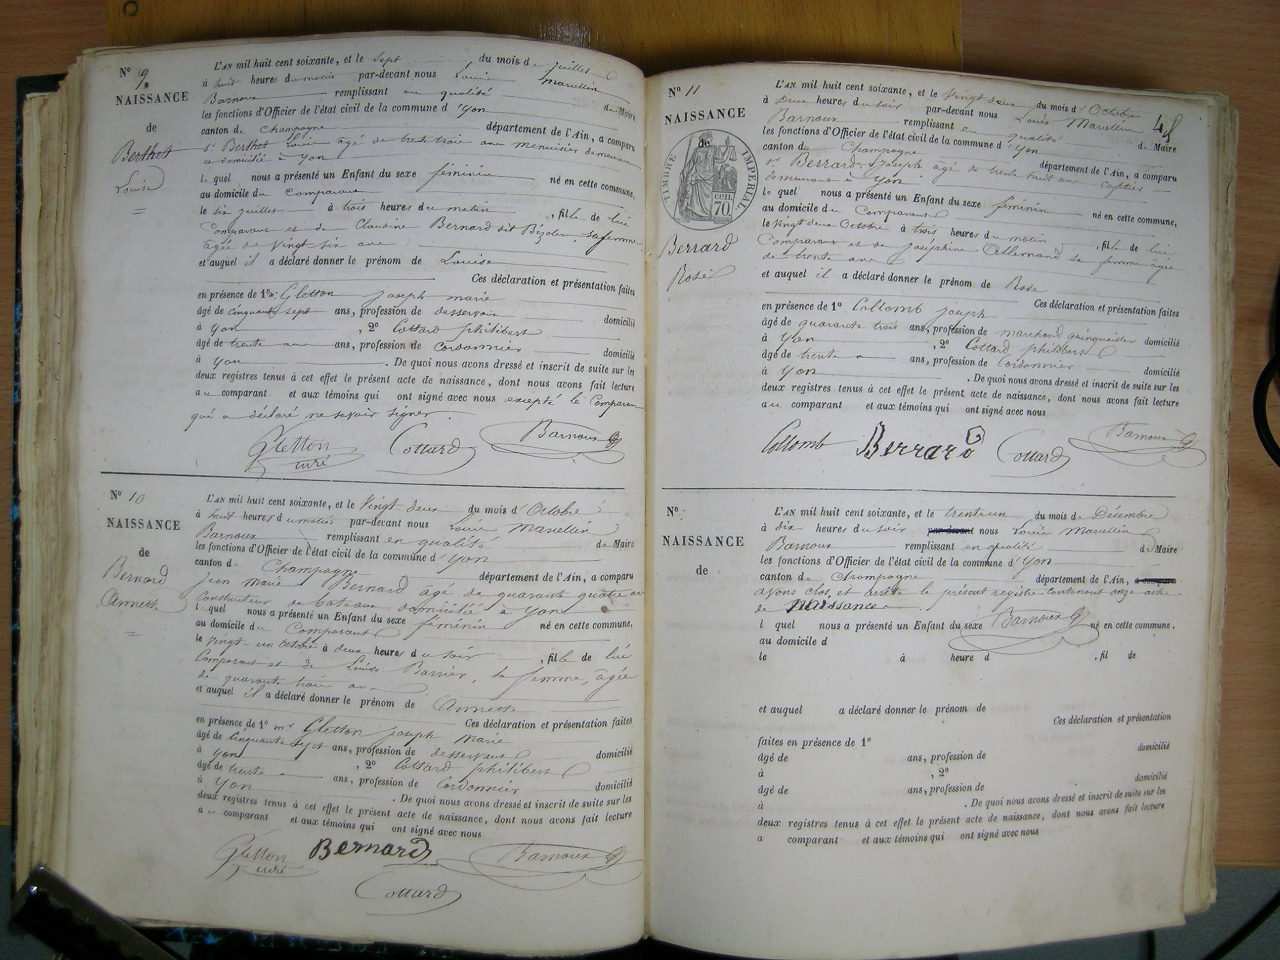 N° 9.
NAISSANCE
de
Berthet
Louise
L'AN mil huit cent soixante, et le sept du mois de juillet
à huit heures du matin par-devant nous Louis Marcellin
Barnoux remplissant en qualité de Maire
les fonctions d'Officier de l'état civil de la commune d'Yon
canton de Champagne département de l'Ain, a comparu
sr Berthet Louis âgé de trente trois ans menuisier demeurant
et domicilié à Yon
lequel nous a présenté un Enfant du sexe féminin né en cette commune,
au domicile du Comparant
le six juillet à trois heures du matin, fille de lui
Comparant et de Claudine Bernard dit Bizolon, sa femme
âgée de vingt six ans
et auquel il a déclaré donner le prénom de Louise
Ces déclaration et présentation faites
en présence de 1° mr Gletton joseph marie
âgé de cinquante sept ans, profession de desservant domicilié
à Yon, 2° Cottard philibert
âgé de trente ans, profession de Cordonnier domicilié
à Yon. De quoi nous avons dressé et inscrit de suite sur les
deux registres tenus à cet effet le présent acte de naissance, dont nous avons fait lecture
au comparant et aux témoins qui ont signé avec nous excepté le Comparant
qui a déclaré ne savoir signer.
Gletton curé Cottard Barnoux
N° 10
NAISSANCE
de
Bernard
Annette
L'AN mil huit cent soixante, et le Vingt deux du mois d'Octobre
à huit heures du matin par-devant nous Louis Marcellin
Barnoux remplissant en qualité de Maire
les fonctions d'Officier de l'état civil de la commune d'Yon
canton de Champagne département de l'Ain, a comparu
jean marie Bernard âgé de quarante quatre ans
Constructeur de bateaux domicilié à Yon
lequel nous a présenté un Enfant du sexe féminin né en cette commune,
au domicile du Comparant
le vingt un octobre à deux heures du soir, fille de lui
Comparant et de Louise Barrier, sa femme, âgée
de quarante trois ans
et auquel il a déclaré donner le prénom de Annette
Ces déclaration et présentation faites
en présence de 1° mr Gletton joseph Marie
âgé de Cinquante sept ans, profession de desservant domicilié
à Yon, 2° Cottard philibert
âgé de trente ans, profession de Cordonnier domicilié
à Yon. De quoi nous avons dressé et inscrit de suite sur les
deux registres tenus à cet effet le présent acte de naissance, dont nous avons fait lecture
au comparant et aux témoins qui ont signé avec nous
Gletton curé Bernard Barnoux
Cottard
N° 11
NAISSANCE
de
TIMBRE IMPERIAL
70
Berrard
Rose
48
L'AN mil huit cent soixante, et le Vingt deux du mois d'Octobre
à deux heures du soir par-devant nous Louis Marcellin
Barnoux remplissant en qualité de Maire
les fonctions d'Officier de l'état civil de la commune d'Yon
canton de Champagne département de l'Ain, a comparu
sr Berrard joseph âgé de trente huit ans
demeurant à Yon
lequel nous a présenté un Enfant du sexe féminin né en cette commune,
au domicile du Comparant
le vingt deux Octobre à trois heures du matin, fille de lui
Comparant et de joséphine sa femme âgée
de trente ans
et auquel il a déclaré donner le prénom de Rose
Ces déclaration et présentation faites
en présence de 1° Collomb joseph
âgé de quarante trois ans, profession de marchand quinquailler domicilié
à Yon, 2° Cottard philibert
âgé de trente ans, profession de Cordonnier domicilié
à Yon. De quoi nous avons dressé et inscrit de suite sur les
deux registres tenus à cet effet le présent acte de naissance, dont nous avons fait lecture
au comparant et aux témoins qui ont signé avec nous
Collomb Berrard Cottard Barnoux
N°
NAISSANCE
de
L'AN mil huit cent soixante, et le trente un du mois de Décembre
à dix heures du soir par-devant nous Louis Marcellin
Barnoux remplissant en qualité de Maire
les fonctions d'Officier de l'état civil de la commune d'Yon
canton de Champagne département de l'Ain, a comparu
avons clos et arrêté le présent registre contenant onze actes
de Naissance
l quel nous a présenté un Enfant du sexe né en cette commune.
Barnoux
au domicile d
le à heure d, fil de
et auquel a déclaré donner le prénom de
Ces déclaration et présentation
faites en présence de 1°
âgé de ans, profession de domicilié
à, 2°
âgé de ans, profession de domicilié
à. De quoi nous avons dressé et inscrit de suite sur les
deux registres tenus à cet effet le présent acte de naissance, dont nous avons fait lecture
a comparant et aux témoins qui ont signé avec nous